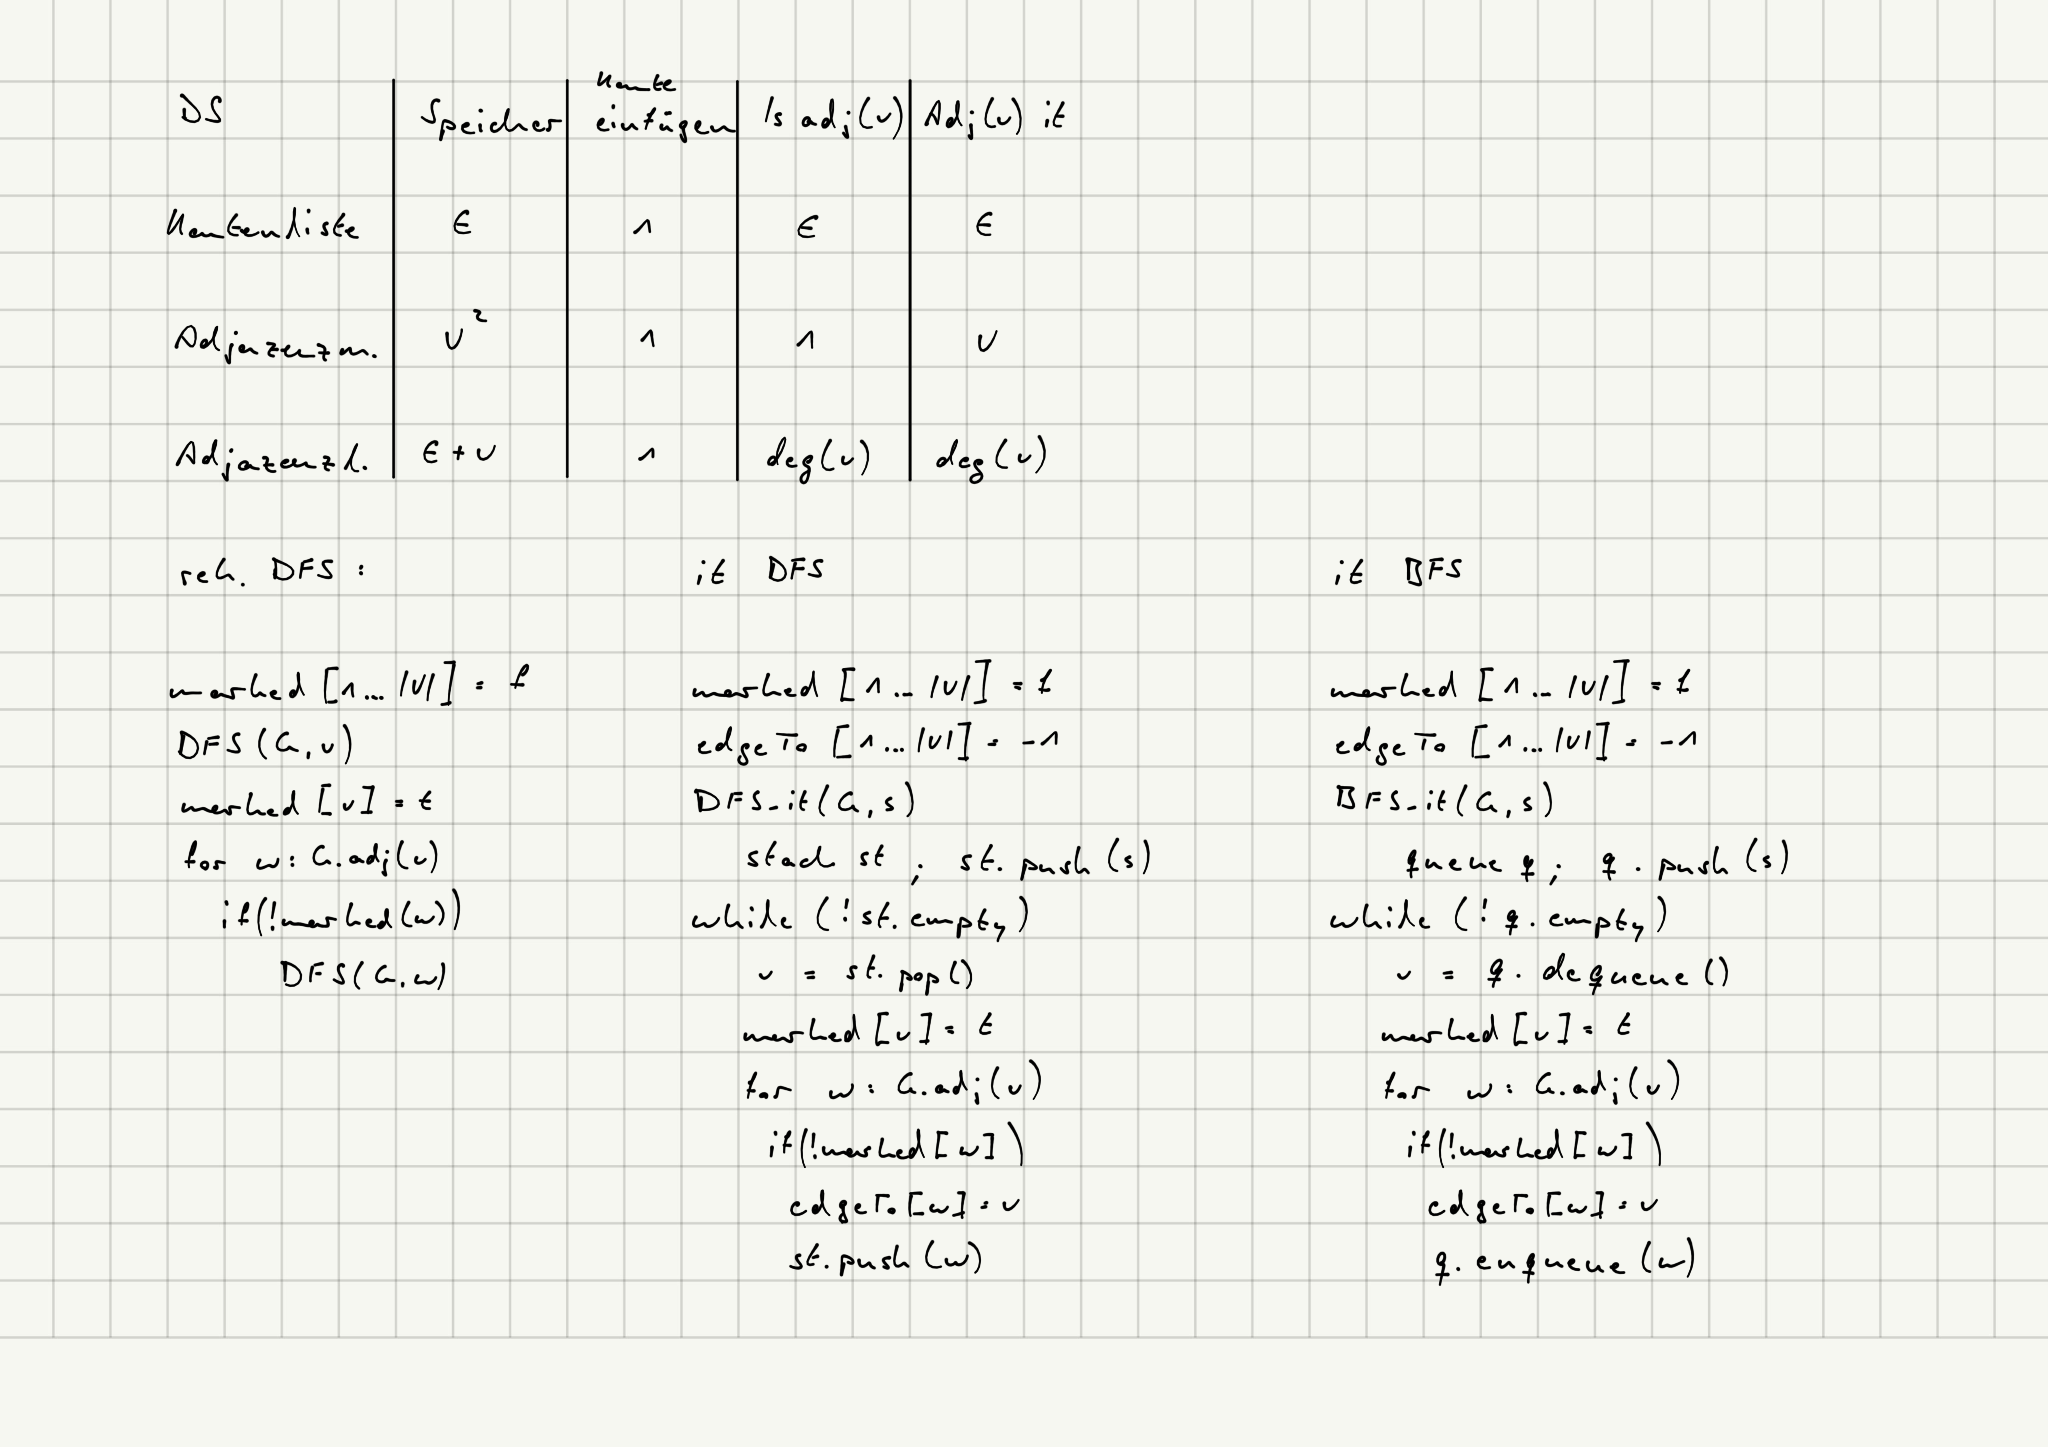 DS | Speicher | Kante einfügen | Is adj(v) | Adj(v) it
Kantenliste | E | 1 | E | E
Adjazenzm. | V² | 1 | 1 | V
Adjazenzl. | E + V | 1 | deg(v) | deg(v)
rek. DFS :
marked [1... |V|] = f
DFS (G, v)
marked [v] = t
for w: G.adj(v)
if(!marked(w))
DFS(G,w)
it DFS
marked [1.. |V|] = f
edgeTo [1... |V|] = -1
DFS-it(G,s)
stack st ; st. push (s)
while (! st. empty)
v = st. pop()
marked [v] = t
for w : G.adj(v)
if(!marked [w])
edgeTo [w] = v
st. push (w)
it BFS
marked [1.. |V|] = f
edgeTo [1... |V|] = -1
BFS-it(G,s)
queue q ; q . push (s)
while (! q. empty)
v = q. dequeue ()
marked [v] = t
for w : G.adj(v)
if(!marked [w])
edgeTo [w] = v
q. enqueue (w)